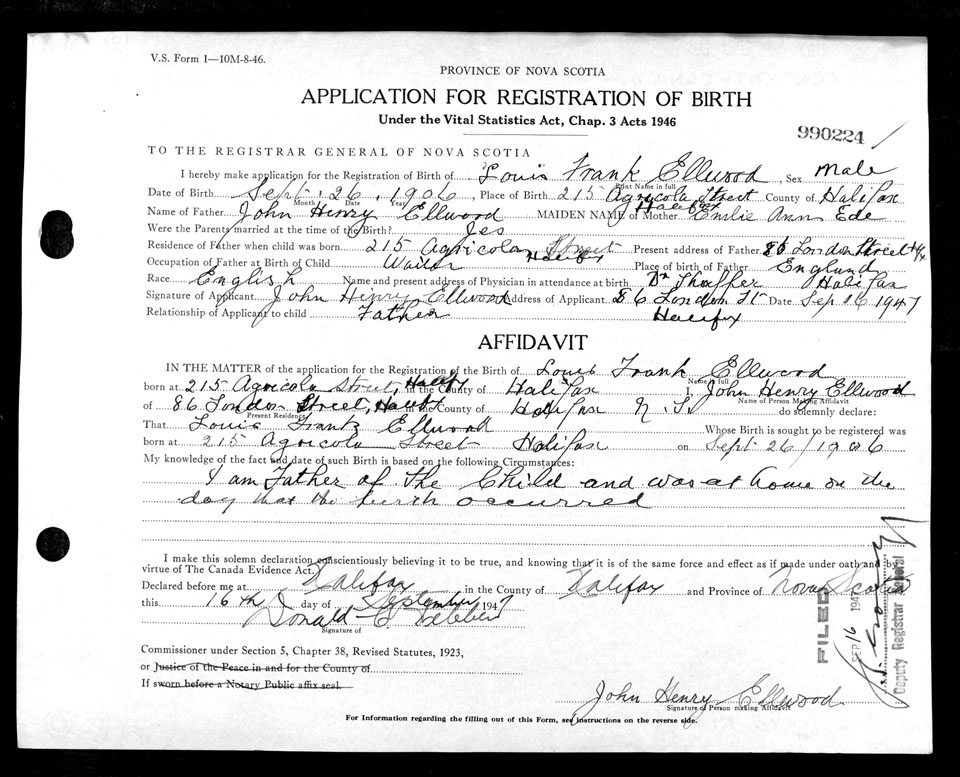 V.S. Form 1—10M-8-46.
PROVINCE OF NOVA SCOTIA
APPLICATION FOR REGISTRATION OF BIRTH
Under the Vital Statistics Act, Chap. 3 Acts 1946
990224
TO THE REGISTRAR GENERAL OF NOVA SCOTIA
I hereby make application for the Registration of Birth of Louis Frank Ellwood, Sex Male
Print Name in full
Date of Birth Sept. 26, 1906, Place of Birth 215 Agricola Street County of Halifax
Month Date Year Halifax
Name of Father John Henry Ellwood MAIDEN NAME of Mother Emilie Ann Ede
Were the Parents married at the time of the Birth? Yes
Residence of Father when child was born 215 Agricola Street Halifax Present address of Father 86 London Street Hfx
Occupation of Father at Birth of Child Place of birth of Father England
Race English Name and present address of Physician in attendance at birth Dr Halifax
Signature of Applicant John Henry Ellwood Address of Applicant 86 London St Date Sep 16 1947
Relationship of Applicant to child Father Halifax
AFFIDAVIT
IN THE MATTER of the application for the Registration of the Birth of Louis Frank Ellwood
Name in full
born at 215 Agricola Street, Halifax in the County of Halifax John Henry Ellwood
Name of Person Making Affidavit
of 86 London Street, Halifax in the County of Halifax N.S. do solemnly declare:
Present Residence
That Louis Frank Ellwood Whose Birth is sought to be registered was
born at 215 Agricola Street Halifax on Sept 26/1906
My knowledge of the fact and date of such Birth is based on the following Circumstances:
I am Father of The Child and was at home on the
day that the birth occurred
I make this solemn declaration conscientiously believing it to be true, and knowing that it is of the same force and effect as if made under oath and by
virtue of The Canada Evidence Act.
Declared before me at Halifax in the County of Halifax and Province of Nova Scotia
this 16th day of September 1947
Donald
Signature of
FILED
SEP 16 1947
Deputy Registrar General
Commissioner under Section 5, Chapter 38, Revised Statutes, 1923,
or Justice of the Peace in and for the County of
If sworn before a Notary Public affix seal.
John Henry Ellwood
Signature of Person making Affidavit
For Information regarding the filling out of this Form, see instructions on the reverse side.